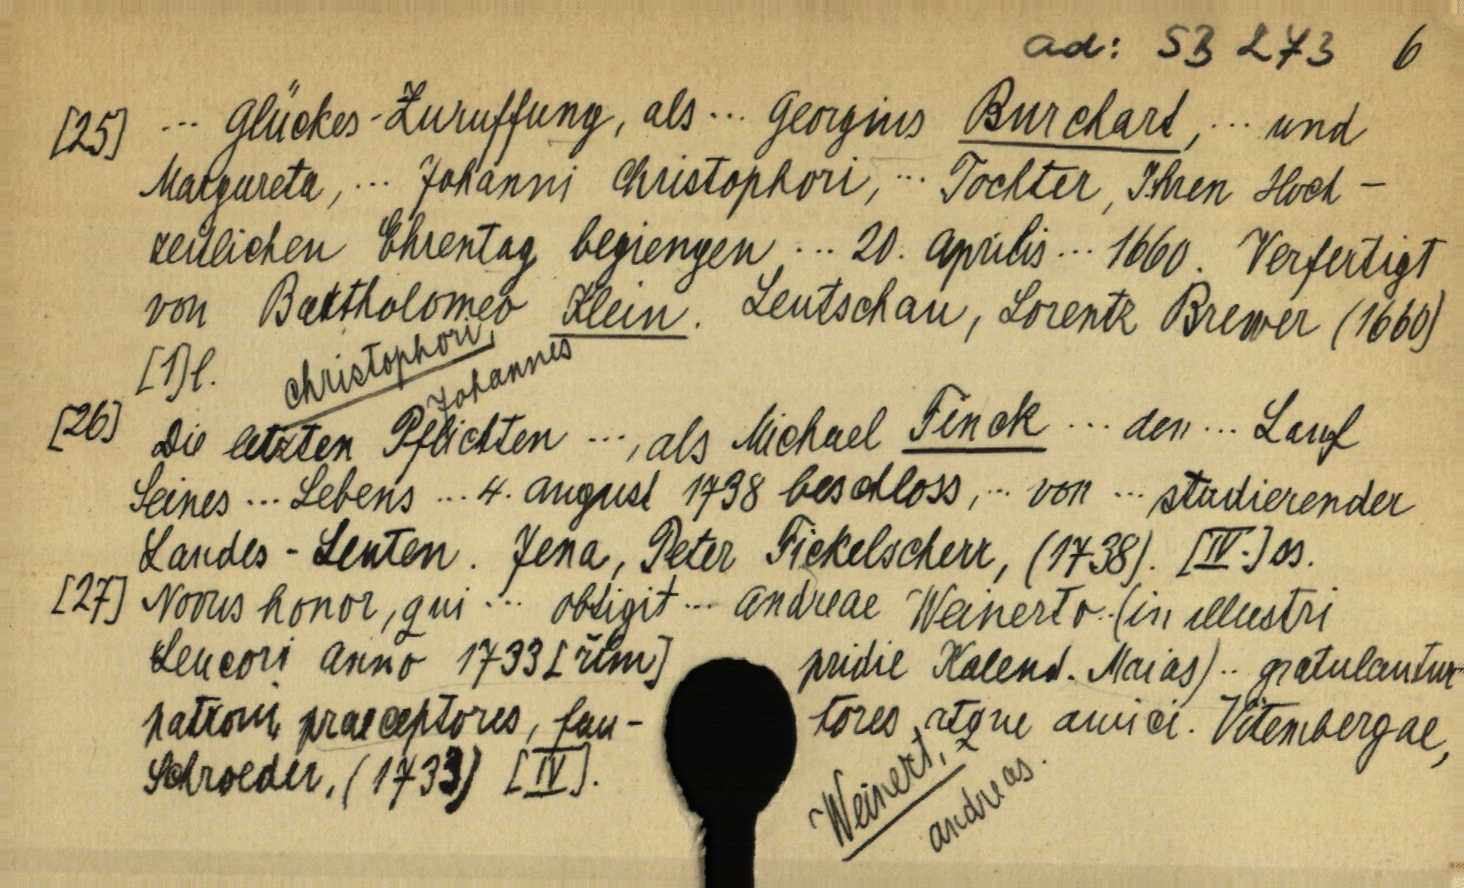 ad: SB 273 6
[25] ... Glückes-Zuruffung, als ... Georgius Burchart, ... und
Margareta, ... Johanni Christophori, ... Tochter, Ihren Hoch-
zeitlichen Ehrentag begiengen ... 20. Aprilis ... 1660. Verfertigt
von Bartholomeo Klein. Leutschau, Lorentz Brewer (1660)
[1] l.
Christophori, Johannes
[26] Die letzten Pflichten ..., als Michael Finck ... den ... Lauf
Seines ... Lebens ... 4. August 1738 beschloss, ... von ... studierender
Landes-Leuten. Jena, Peter Fickelscherr, (1738). [IV.] ss.
[27] Novus honor, qui ... obtigit ... Andreae Weinerto (in illustri
Leucori Anno 1733 [řím] pridie Kalend. Maias) .. gratulantur
patroni, praeceptores, fau-tores atque amici. Vitembergae,
Schroeder, (1733) [IV].
Weinert, Andreas.